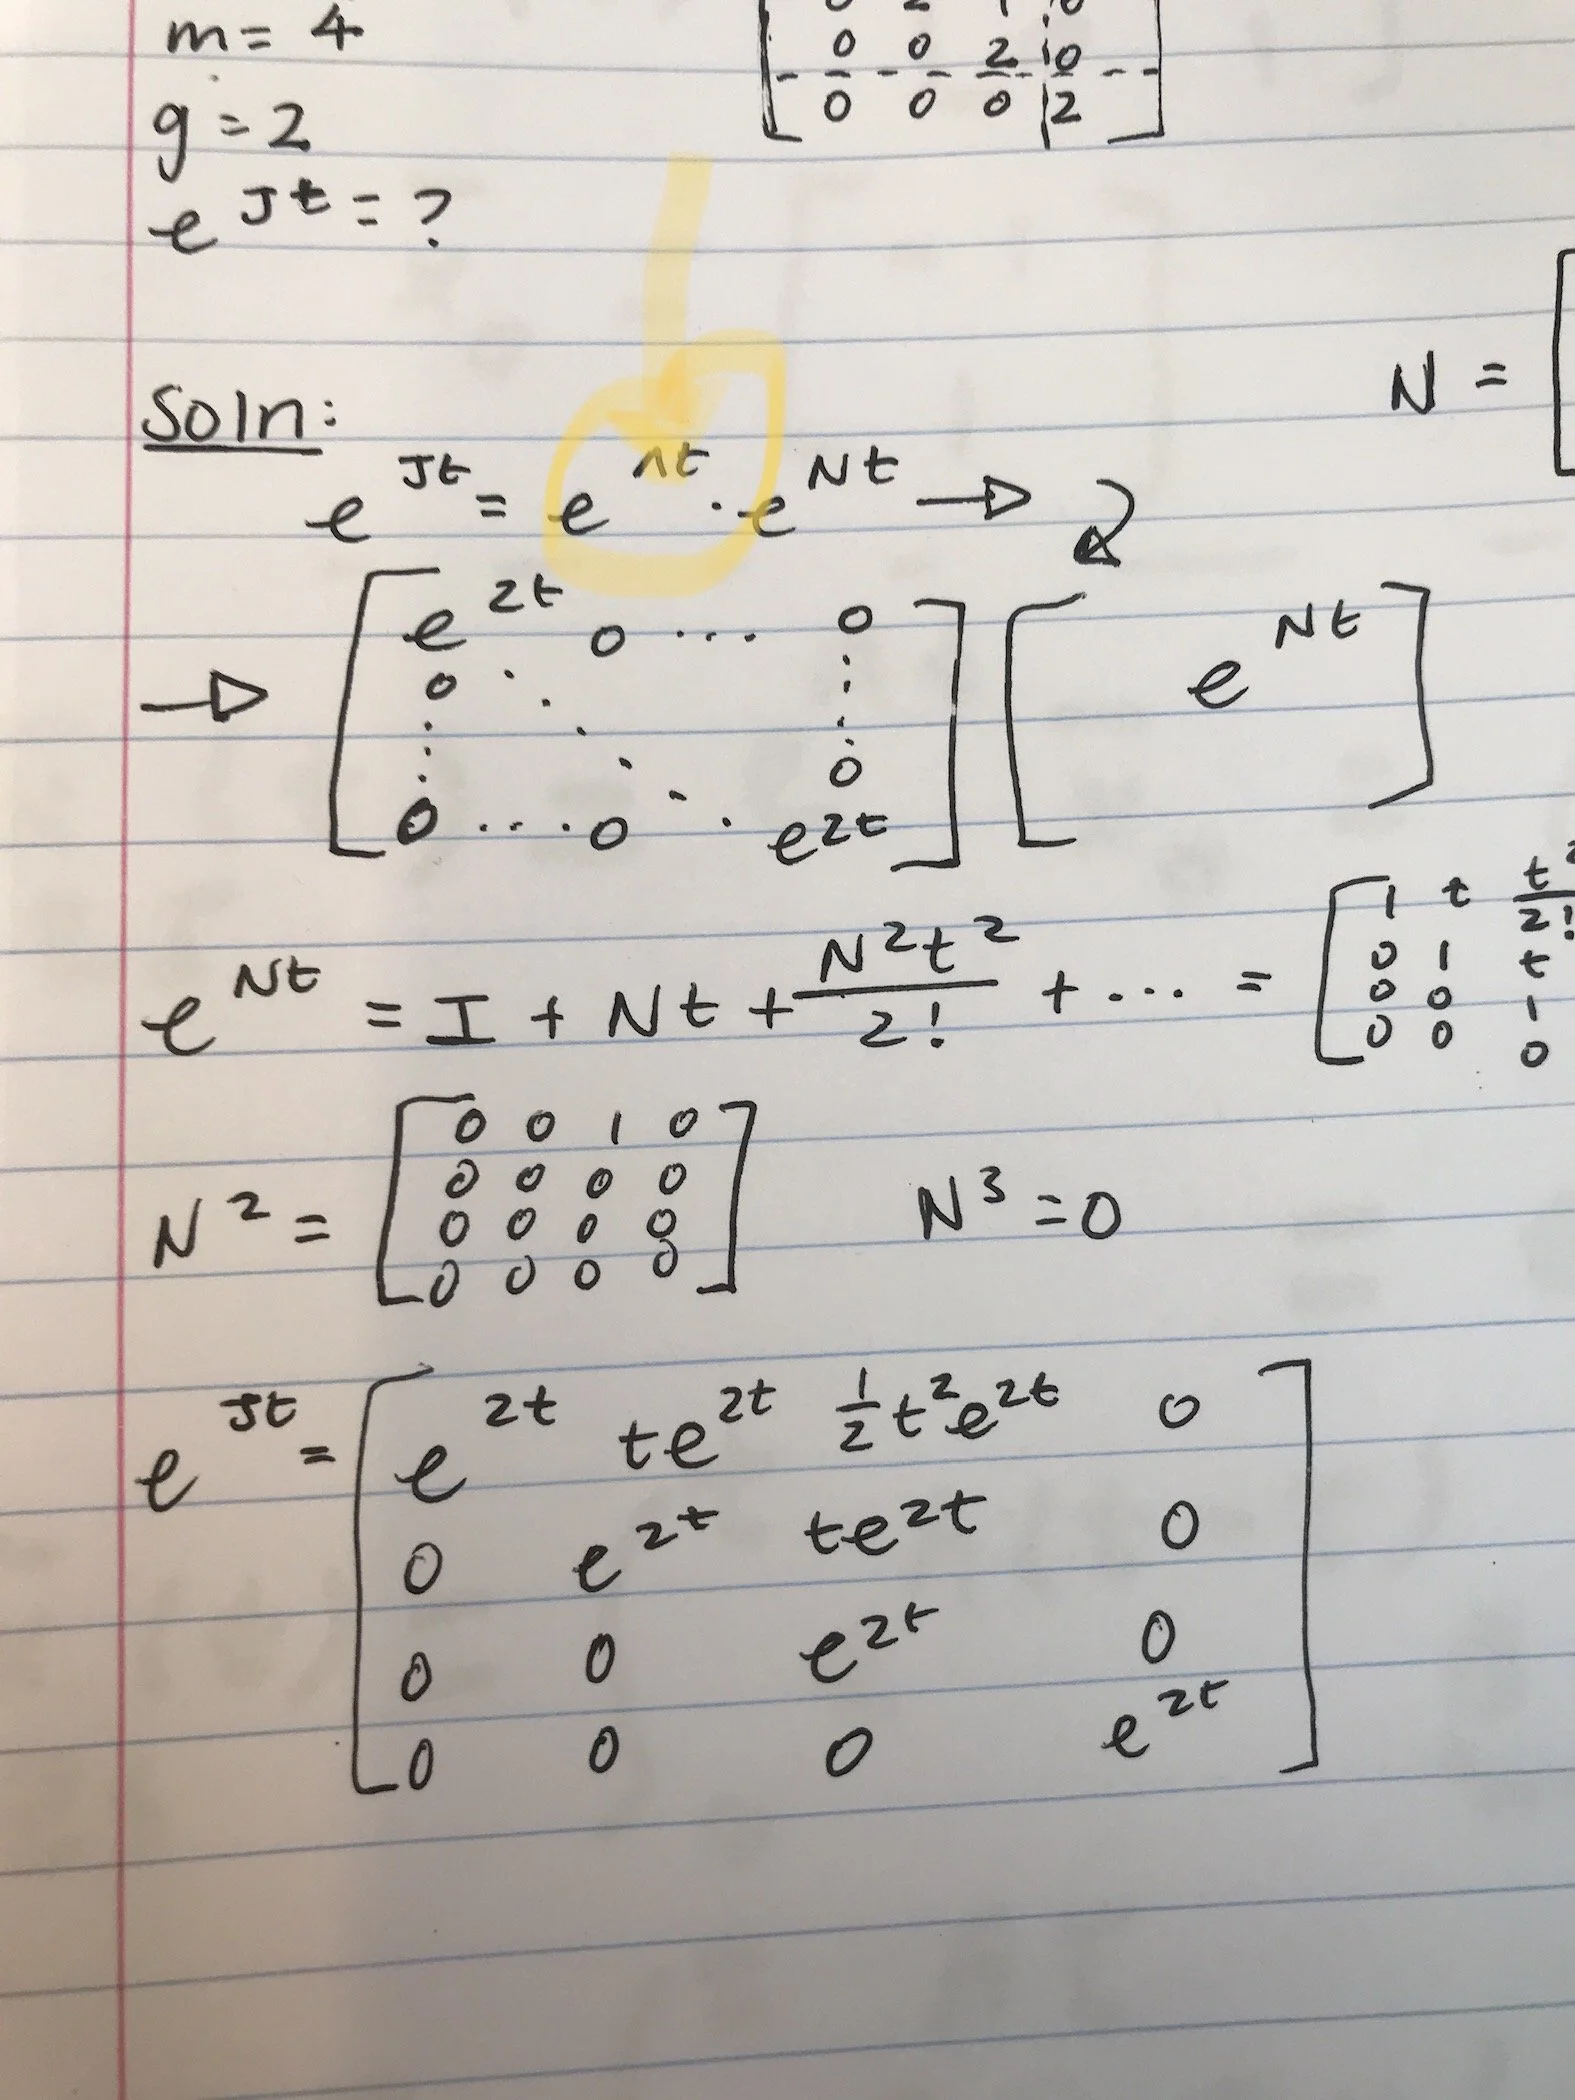 m = 4
0 0 2 0
0 0 0 2
g = 2
e^{Jt} = ?
N = [
Soln:
e^{Jt} = e^{Λt} · e^{Nt} →
→ [ e^{2t} 0 ... 0 ] [ e^{Nt} ]
0 ⋱ ⋮
⋮ 0
0 ... 0 . e^{2t}
e^{Nt} = I + Nt + N²t²/2! + ... = [ 1 t t²/2!
0 1 t
0 0 1
0 0 0
N² = [ 0 0 1 0 ] N³ = 0
0 0 0 0
0 0 0 0
0 0 0 0
e^{Jt} = [ e^{2t} te^{2t} ½t²e^{2t} 0 ]
0 e^{2t} te^{2t} 0
0 0 e^{2t} 0
0 0 0 e^{2t}